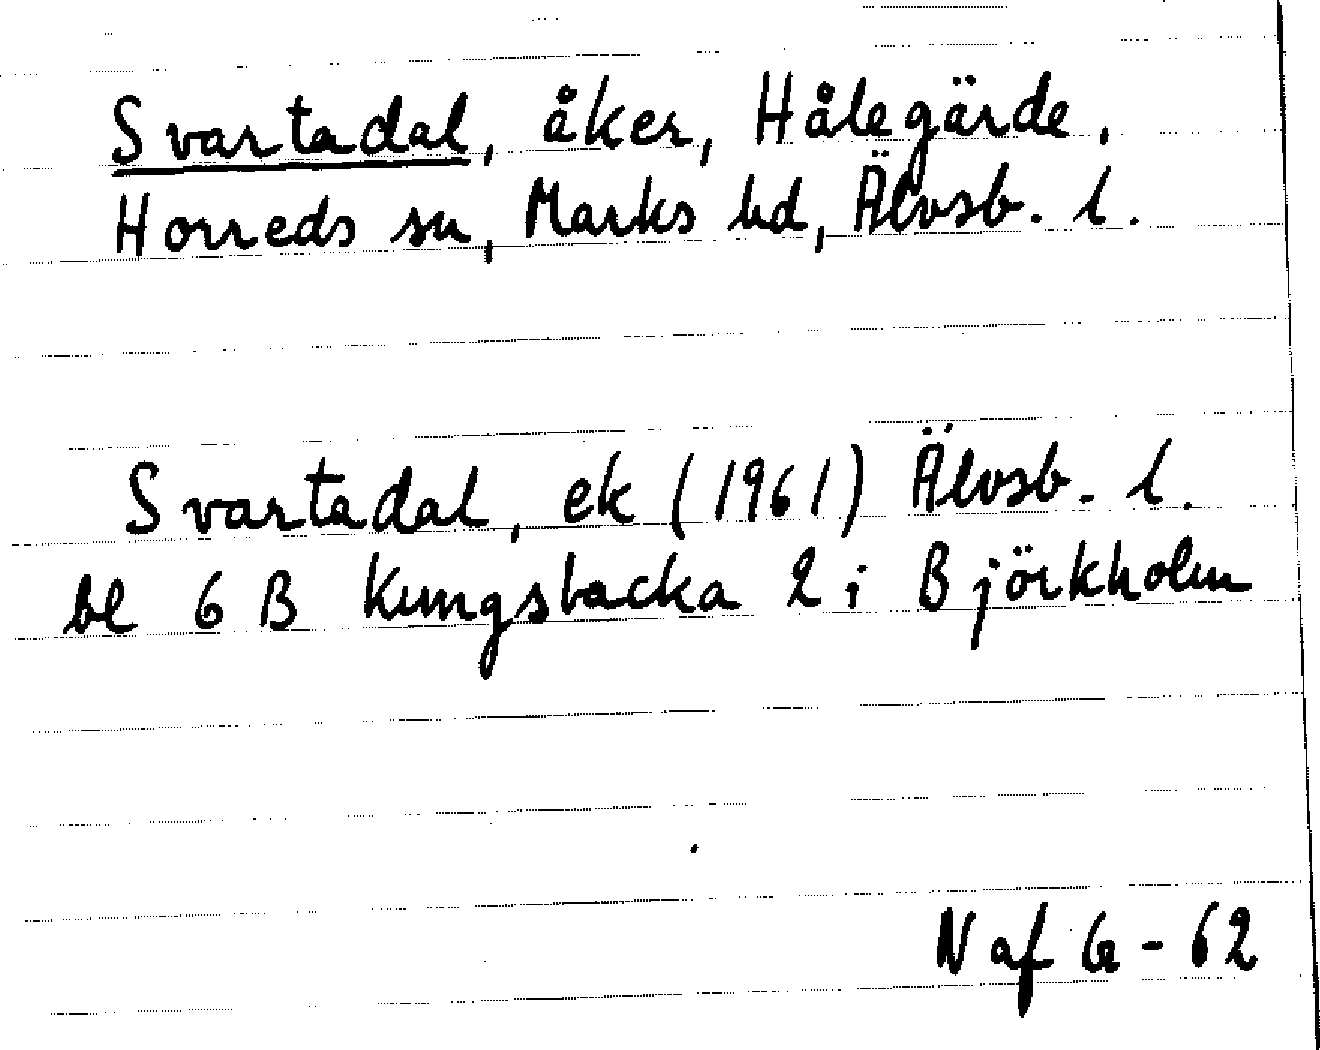 Svartadal, åker, Hålegärde,
Horreds sn, Marks hd, Älvsb. l.
Svartadal, ek (1961) Älvsb. l.
bl 6 B Kungsbacka 2 i Björkholm
N af G - 62